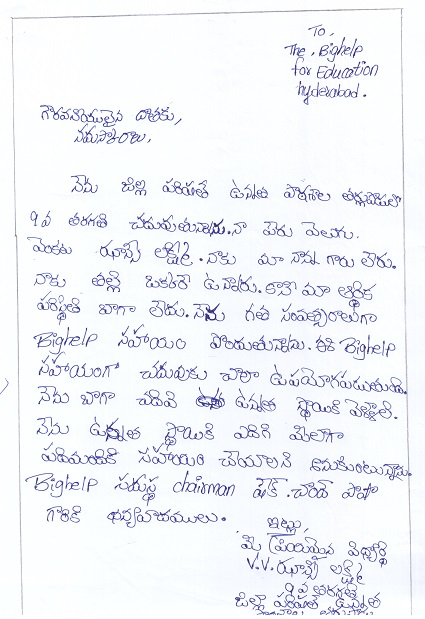 To,
The, Bighelp
for Education
hyderabad.
గౌరవనీయులైన దాతకు,
నమస్కారాలు,
నేను జిల్లా పరిషత్ ఉన్నత పాఠశాల
9వ తరగతి చదువుతున్నాను. నా పేరు వెలుగు.
వెంకట ఝాన్సీ లక్ష్మి. నాకు మా నాన్న గారు లేరు.
నాకు తల్లి ఒకరే ఉన్నారు. కానీ మా ఆర్థిక
పరిస్థితి బాగా లేదు. నేను గత సంవత్సరాలుగా
Bighelp సహాయం పొందుతున్నాను. ఈ Bighelp
సహాయంగా చదువుకు చాలా ఉపయోగపడుతుంది.
నేను బాగా చదివి ఉన్నత స్థాయికి వెళ్ళాలి.
నేను ఉన్నత స్థాయికి ఎదిగి మీలాగా
పదిమందికి సహాయం చేయాలని అనుకుంటున్నాను.
Bighelp సమస్థ chairman షేక్. చాంద్ పాషా
గారికి ధన్యవాదములు.
ఇట్లు,
మీ ప్రియమైన విద్యార్థి
V.V. ఝాన్సీ లక్ష్మి
9వ తరగతి
జిల్లా పరిషత్ ఉన్నత